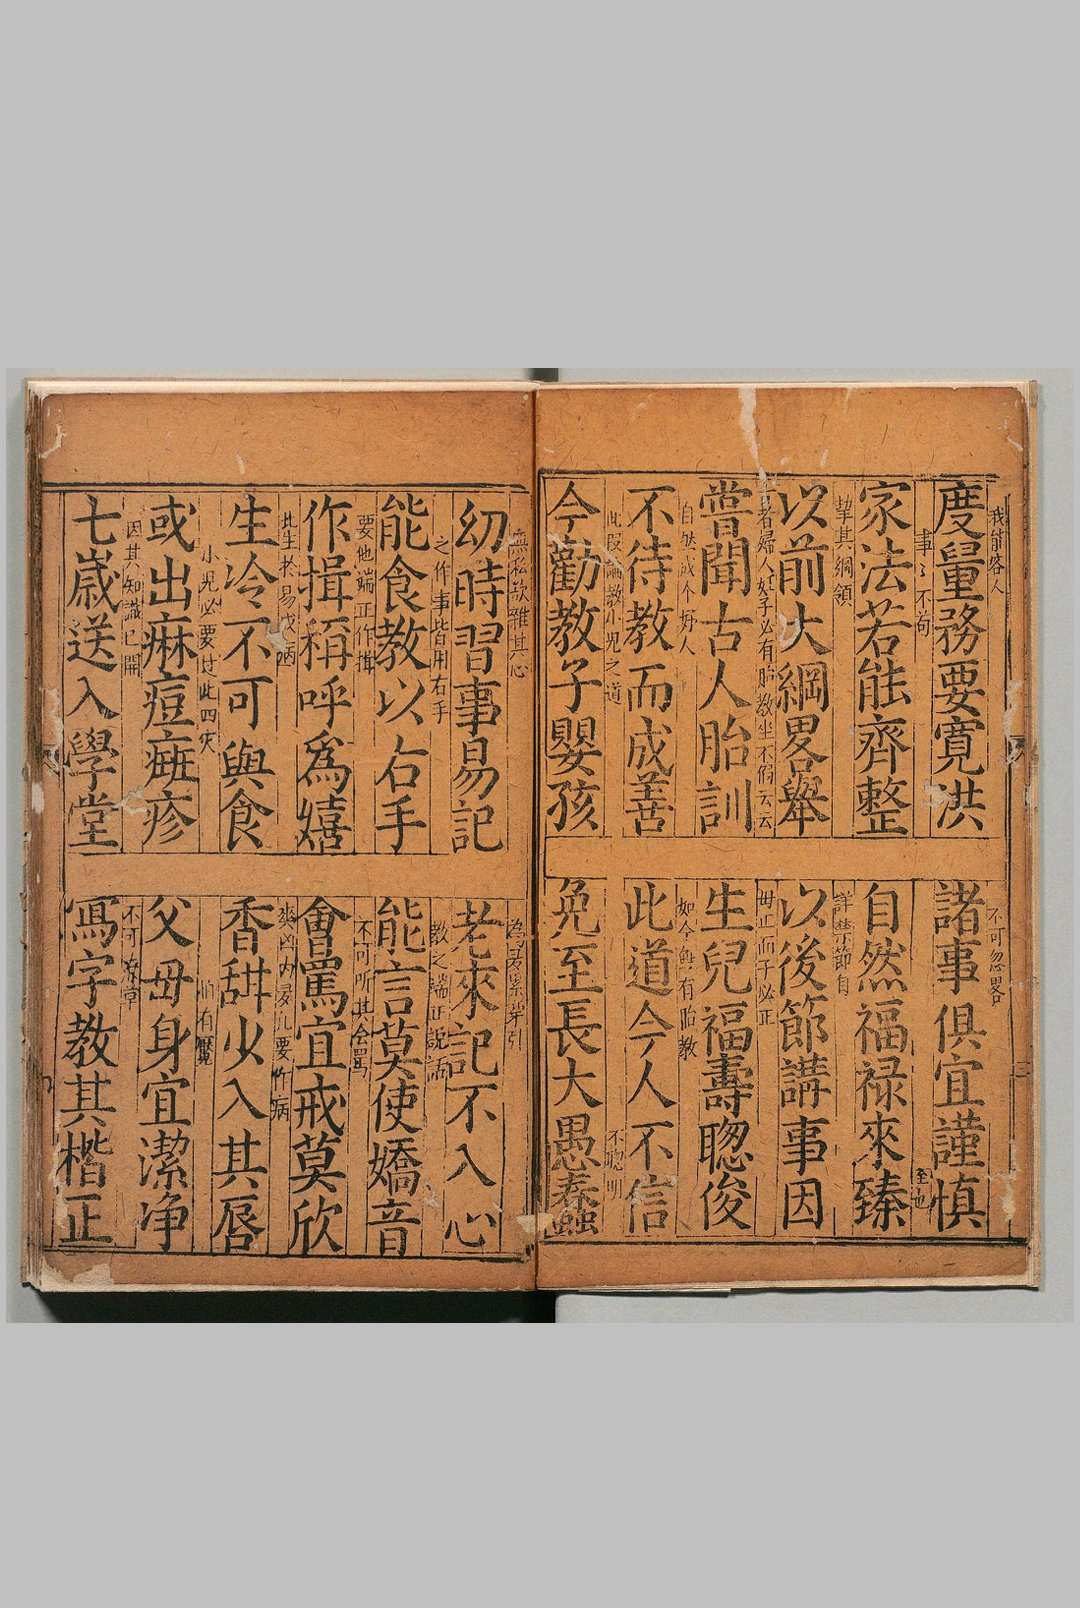 我能容人
度量務要寬洪
不可忽畧
諸事俱宜謹慎
事〻不苟
家法若能齊整
至也
自然福祿來臻
挈其綱領
以前大綱畧舉
以後節講事因
者婦人好子必有胎教坐不偏云云
嘗聞古人胎訓
毋正而子必正
生兒福壽聰俊
自然成个好人
不待教而成善
如今無有胎教
此道今人不信
此段論教小児之道
今勸教子嬰孩
不聰明
免至長大愚蠢
無私欲雜其心
幼時習事易記
牽引
老來記不入心
之作事皆用右手
能食教以右手
教之端正説話
能言莫使嬌音
要他端正作揖
作揖稱呼爲嬉
不可听其会罵
會罵宜戒莫欣
此生於易成病
生冷不可與食
要作病
香甜少入其唇
小児必要过此四灾
或出麻痘癍疹
怕有魘
父毋身宜潔净
因其知識已開
七歲送入學堂
不可潦草
寫字教其楷正